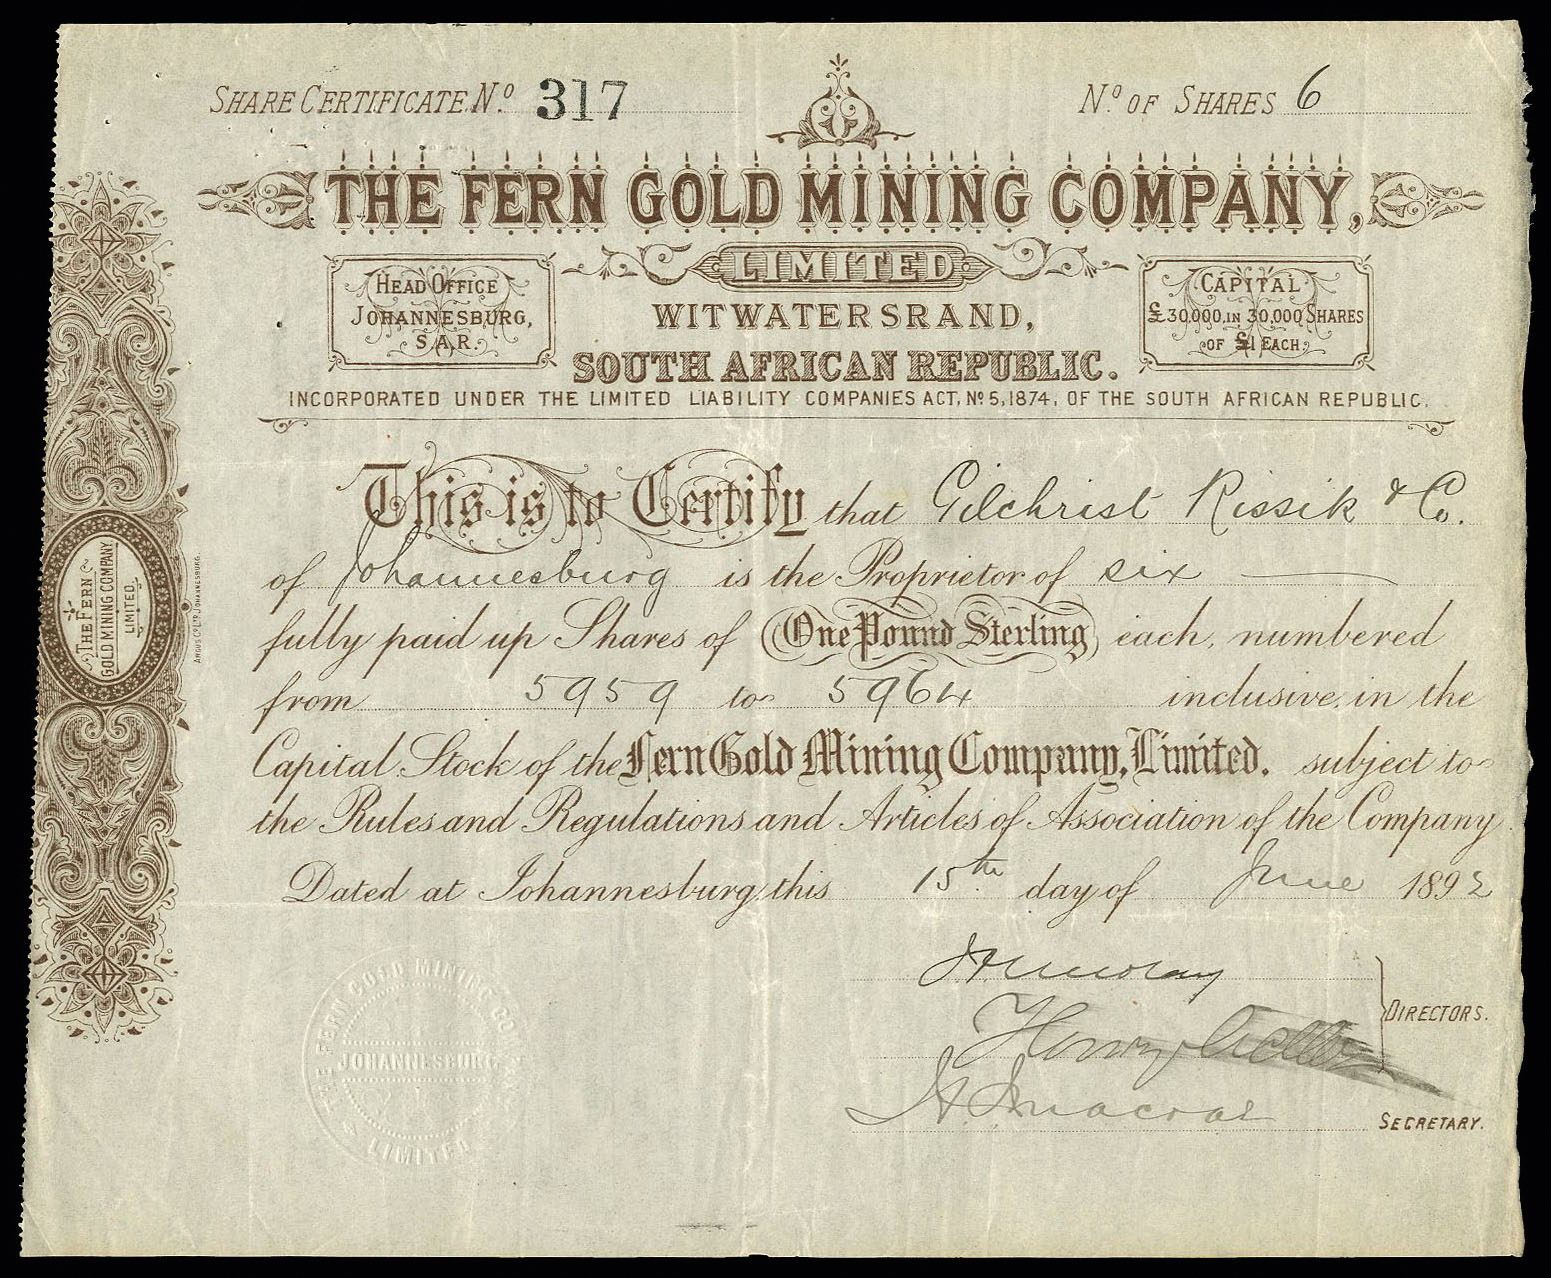 SHARE CERTIFICATE No. 317
No. OF SHARES 6
THE FERN GOLD MINING COMPANY,
LIMITED
HEAD OFFICE
JOHANNESBURG,
S.A.R.
WITWATERSRAND,
SOUTH AFRICAN REPUBLIC.
CAPITAL
£30,000, IN 30,000 SHARES
OF £1 EACH.
INCORPORATED UNDER THE LIMITED LIABILITY COMPANIES ACT, No 5, 1874, OF THE SOUTH AFRICAN REPUBLIC.
This is to Certify that Gilchrist Rissik & Co.
of Johannesburg is the Proprietor of six
fully paid up Shares of One Pound Sterling each, numbered
from 5959 to 5964 inclusive, in the
Capital Stock of the Fern Gold Mining Company, Limited. subject to
the Rules and Regulations and Articles of Association of the Company.
Dated at Johannesburg, this 15th day of June 1892
DIRECTORS.
SECRETARY.
THE FERN
GOLD MINING COMPANY
LIMITED.
ARGUS Co. LTD. JOHANNESBURG.
THE FERN GOLD MINING COMPANY
JOHANNESBURG
LIMITED